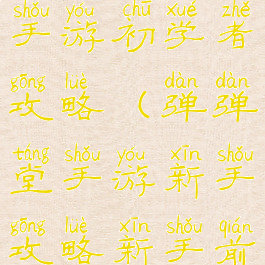 shǒu yóu chū xué zhě
手游初学者
gōng lüè dàn dàn
攻略（弹弹
táng shǒu yóu xīn shǒu
堂手游新手
gōng lüè xīn shǒu qián
攻略新手前